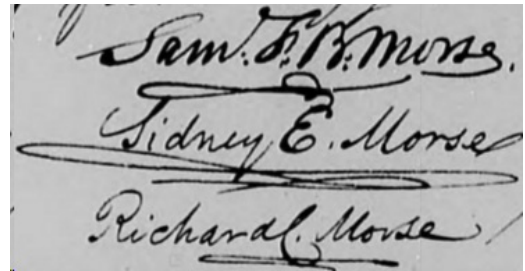 Sam. F. B. Morse.
Sidney E. Morse
Richard C. Morse